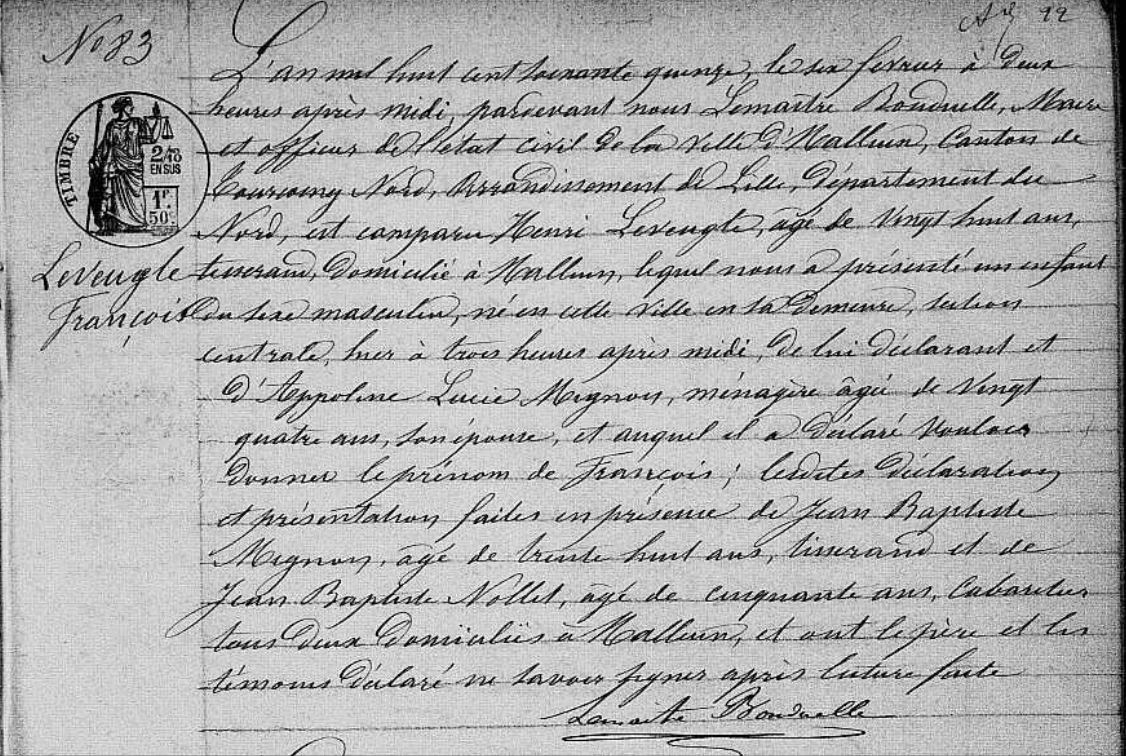 22
No 83
L'an mil huit cent soixante quinze, le six fevrier à deux
heures après midi, pardevant nous Lemaitre Bonduelle, Maire
et officier de l'état civil de la Ville d'Halluin, Canton de
Tourcoing Nord, Arrondissement de Lille, Département du
Nord, est comparu Henri Leveugle, âgé de Vingt huit ans,
tisserand, domicilié à Halluin, lequel nous a présenté un enfant
du sexe masculin, né en cette Ville en sa demeure, section
centrale, hier à trois heures après midi, de lui déclarant et
d'Appoline Lucie Mignon, ménagère âgée de Vingt
quatre ans, son épouse, et auquel il a déclaré vouloir
donner le prénom de François; lesdites déclaration
et présentation faites en présence de Jean Baptiste
Mignon, âgé de trente huit ans, tisserand et de
Jean Baptiste Nollet, âgé de cinquante ans, Cabaretier
tous deux domiciliés à Halluin, et ont le père et les
témoins déclaré ne savoir signer après lecture faite
Lemaitre Bonduelle
TIMBRE
2/10
EN SUS
1F.
50c
Leveugle
François